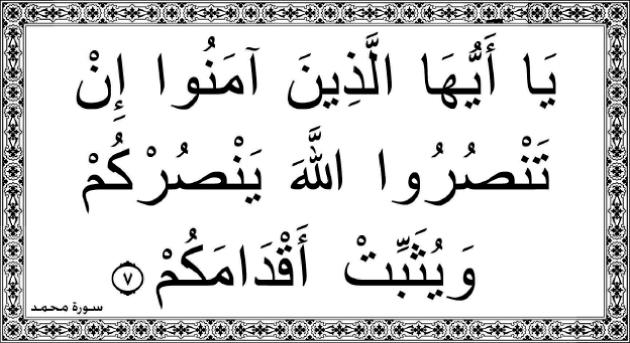 يَا أَيُّهَا الَّذِينَ آمَنُوا إِنْ
تَنْصُرُوا اللَّهَ يَنْصُرْكُمْ
وَيُثَبِّتْ أَقْدَامَكُمْ ٧
سورة محمد